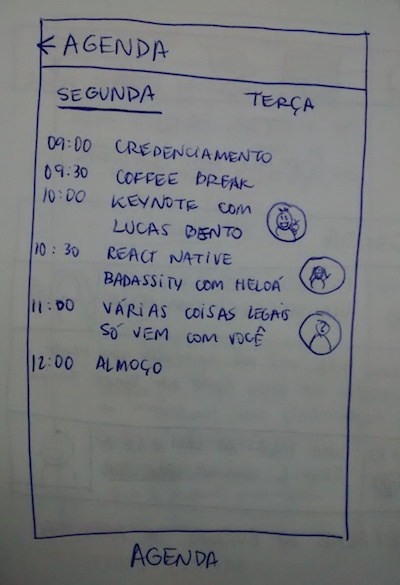 ← AGENDA
SEGUNDA TERÇA
09:00 CREDENCIAMENTO
09:30 COFFEE BREAK
10:00 KEYNOTE COM
LUCAS BENTO
10:30 REACT NATIVE
BADASSITY COM HELOÁ
11:00 VÁRIAS COISAS LEGAIS
SÓ VEM COM VOCÊ
12:00 ALMOÇO
AGENDA